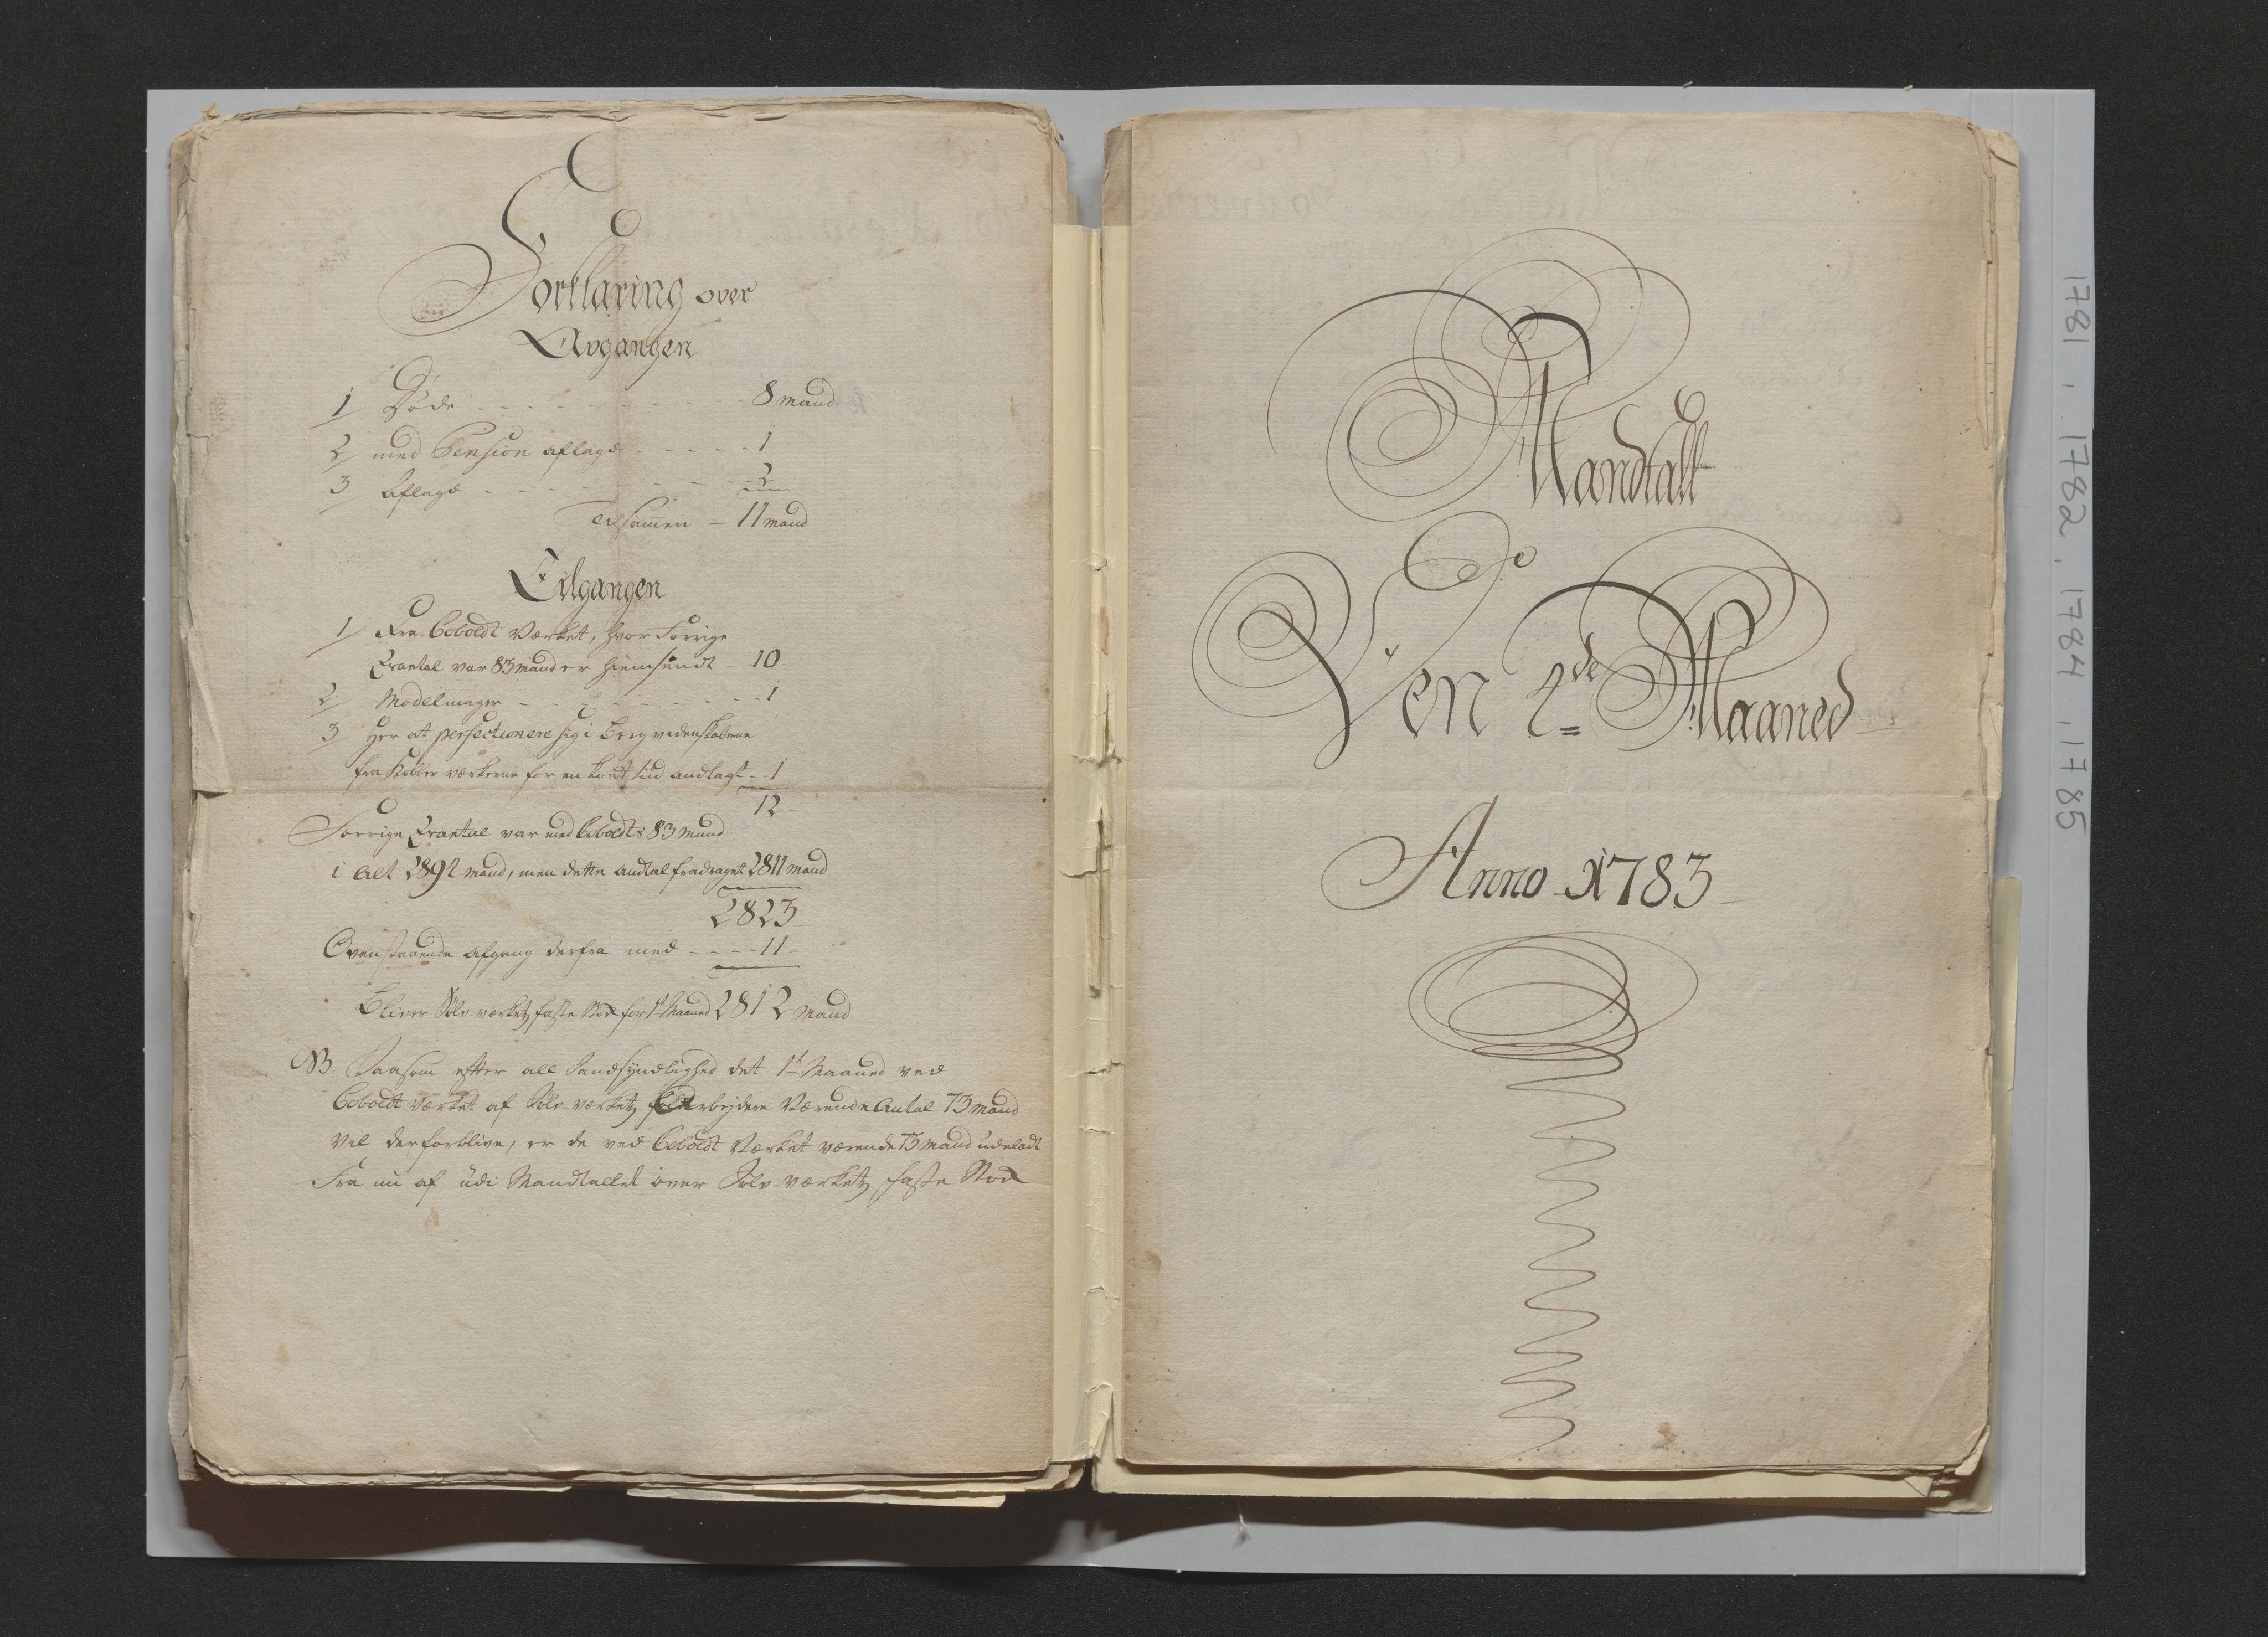 Forklaring over
Avgangen
1/ Døde - - - - - - - - - - 8 mand
2/ med Pension aflagde - - - - - 1
3/ Aflagde - - - - - - - - - - 2
Tilsamen - 11 mand
Tilgangen
1/ Fra Coboldt Værket, hvor Forrige
Qvartal var 83 mand er hiemsendt - 10
2/ Modelmager - - - - - - - - 1
3/ Her at perfectionere sig i Bergvidenskabene
fra Kobber værkerne for en kort tiid andlagt - - 1
12
Forrige Qvartal var med Coboldts 83 mand
i alt 2894 mand, men dette andtal fradraget 2811 mand
2823
Ovenstaaende afgang derfra med - - - - 11
Bliver Sølv-værkets faste Stok for 1te Maaned 2812 mand
NB Saasom efter all Sandsynlighed det 1te Maaned ved
Coboldt værket af Sølv-værkets folk arbejdere Værende Antal 73 mand
vil der forblive, er de ved Coboldt Værket værende 73 mand udeladt
Fra nu af udi Mandtallet over Sølv-værkets faste Stok
Mandtall
Den 2de Maaned
Anno 1783
1781, 1782, 1784, 1785